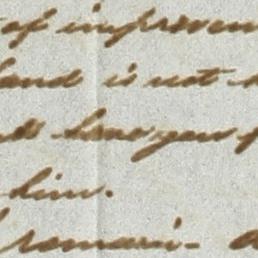 of improvem
land is not
have you
him.
remain-